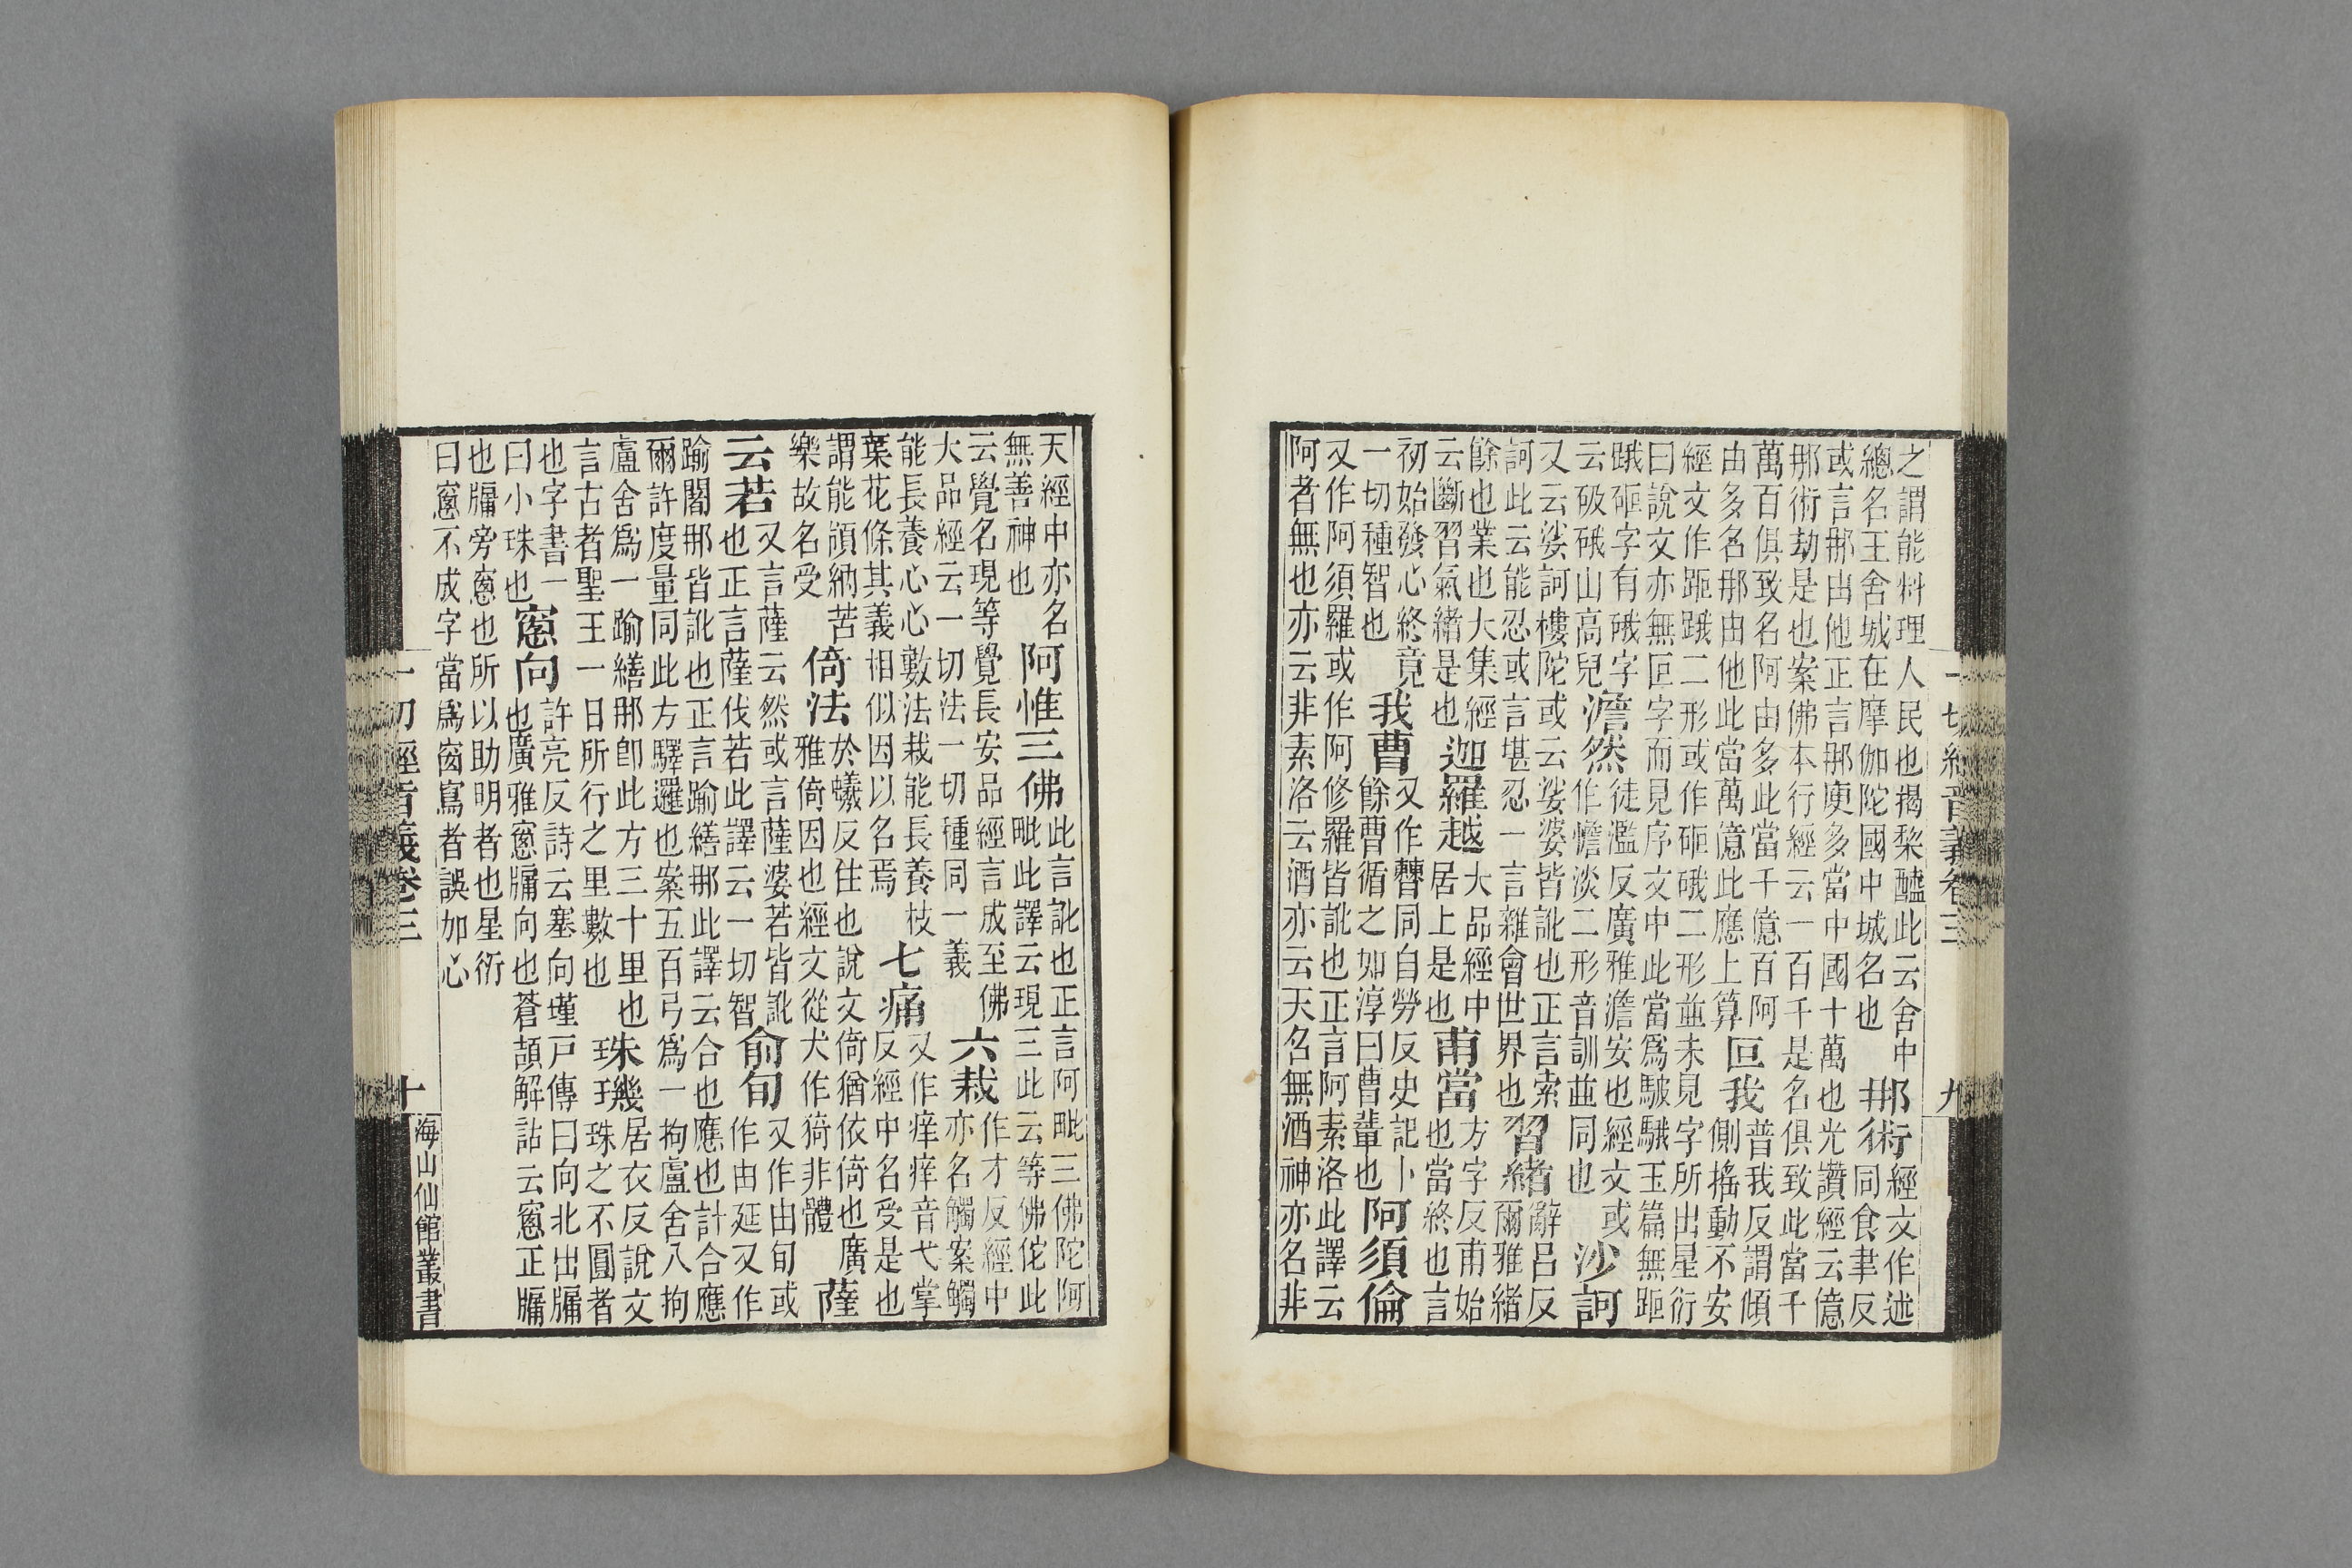 一切經音義卷三
九
之謂能料理人民也揭棃醯此云舍中
總名王舍城在摩伽陀國中城名也
那術
經文作述
同食聿反
或言那由他正言那庾多當中國十萬也光讚經云億
那術劫是也案佛本行經云一百千是名俱致此當千
萬百俱致名阿由多此當千億百阿
由多名那由他此當萬億此應上算
叵我
普我反謂傾
側搖動不安
經文作距䟰二形或作砸硪二形並未見字所出星衍
曰說文亦無叵字而見序文中此當爲駊騀玉篇無距
䟰砸字有硪字
云砐硪山高皃
澹然
徒濫反廣雅澹安也經文或
作憺淡二形音訓並同也
沙訶
又云娑訶樓陀或云娑婆皆訛也正言索
訶此云能忍或言堪忍一言雜會世界也
習緒
辭呂反
爾雅緒
餘也業也大集經
云斷習氣緒是也
迦羅越
大品經中
居上是也
甫當
方字反甫始
也當終也言
初始發心終竟
一切種智也
我曹
又作㯥同自勞反史記卜
餘曹循之如淳曰曹輩也
阿須倫
又作阿須羅或作阿修羅皆訛也正言阿素洛此譯云
阿者無也亦云非素洛云酒亦云天名無酒神亦名非
天經中亦名
無善神也
阿惟三佛
此言訛也正言阿毗三佛陀阿
毗此譯云現三此云等佛佗此
云覺名現等覺長安品經言成至佛
大品經云一切法一切種同一義
六栽
作才反經中
亦名觸案觸
能長養心心數法栽能長養枝
葉花條其義相似因以名焉
七痛
又作痒痒音弋掌
反經中名受是也
謂能頜納苦
樂故名受
倚法
於蟻反住也說文倚猶依倚也廣
雅倚因也經文從犬作猗非體
薩
云若
又言薩云然或言薩婆若皆訛
也正言薩伐若此譯云一切智
俞旬
又作由旬或
作由延又作
踰闍那皆訛也正言踰繕那此譯云合也應也計合應
爾許度量同此方驛邏也案五百弓爲一拘盧舍八拘
盧舍爲一踰繕那卽此方三十里也
言古者聖王一日所行之里數也
珠璣
居衣反說文
珠之不圓者
也字書一
曰小珠也
窻向
許亮反詩云塞向墐戶傳曰向北出牖
也廣雅窻牖向也蒼頡解詁云窻正牖
也牖旁窻也所以助明者也星衍
曰窻不成字當爲窗寫者誤加心
一切經音義卷三
十
海山仙館叢書